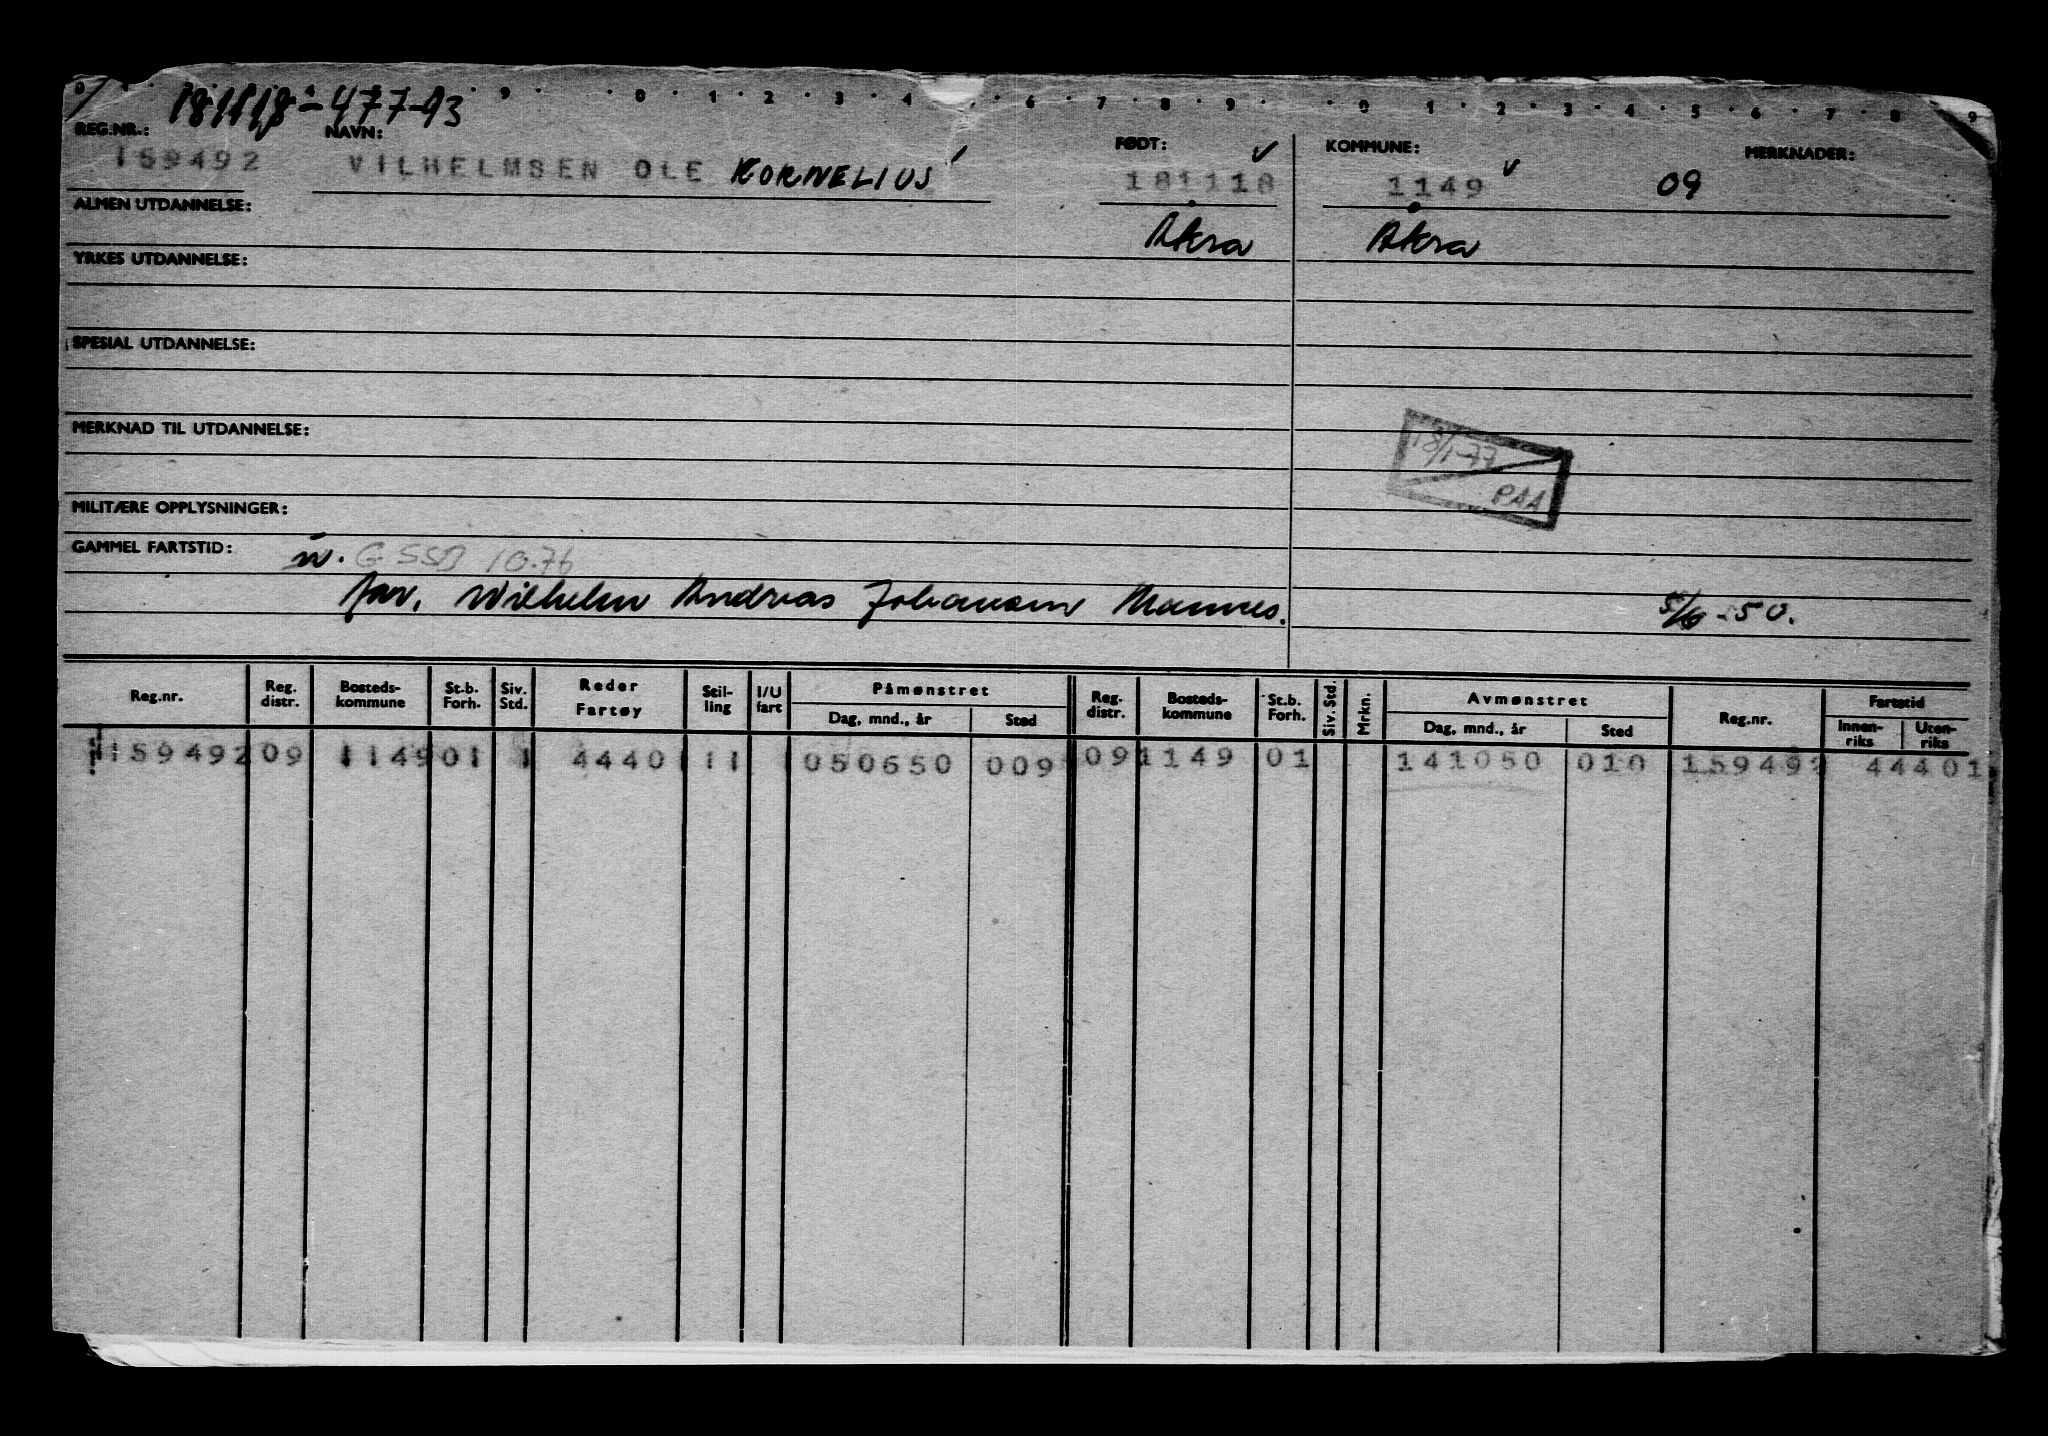 181118-47743
REG.NR.: NAVN: FØDT: KOMMUNE: MERKNADER:
159492 VILHELMSEN OLE KORNELIUS 181118 1149 09
ALMEN UTDANNELSE: Åkra Åkra
YRKES UTDANNELSE:
SPESIAL UTDANNELSE:
MERKNAD TIL UTDANNELSE:
18/1-77
PAA
MILITÆRE OPPLYSNINGER:
GAMMEL FARTSTID: 10.76
far. Wilhelm Andreas Johansen Mannes. 5/6-50.
Reg.nr. Reg. distr. Bosteds-kommune St.b. Forh. Siv. Std. Reder Fartøy Stil-ling I/U fart Påmønstret Dag, mnd., år Sted Reg. distr. Bosteds-kommune St.b. Forh. Siv. Std. Mrkn. Avmønstret Dag, mnd., år Sted Reg.nr. Fartstid Innen-riks Uten-riks
159492 09 1149 01 1 44401 11 050650 009 09 1149 01 141050 010 159492 44401